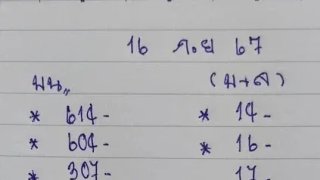 16 ก.ย 67
บน,, (บ+ล)
* 614- * 14-
* 604- * 16-
* 307- 17-